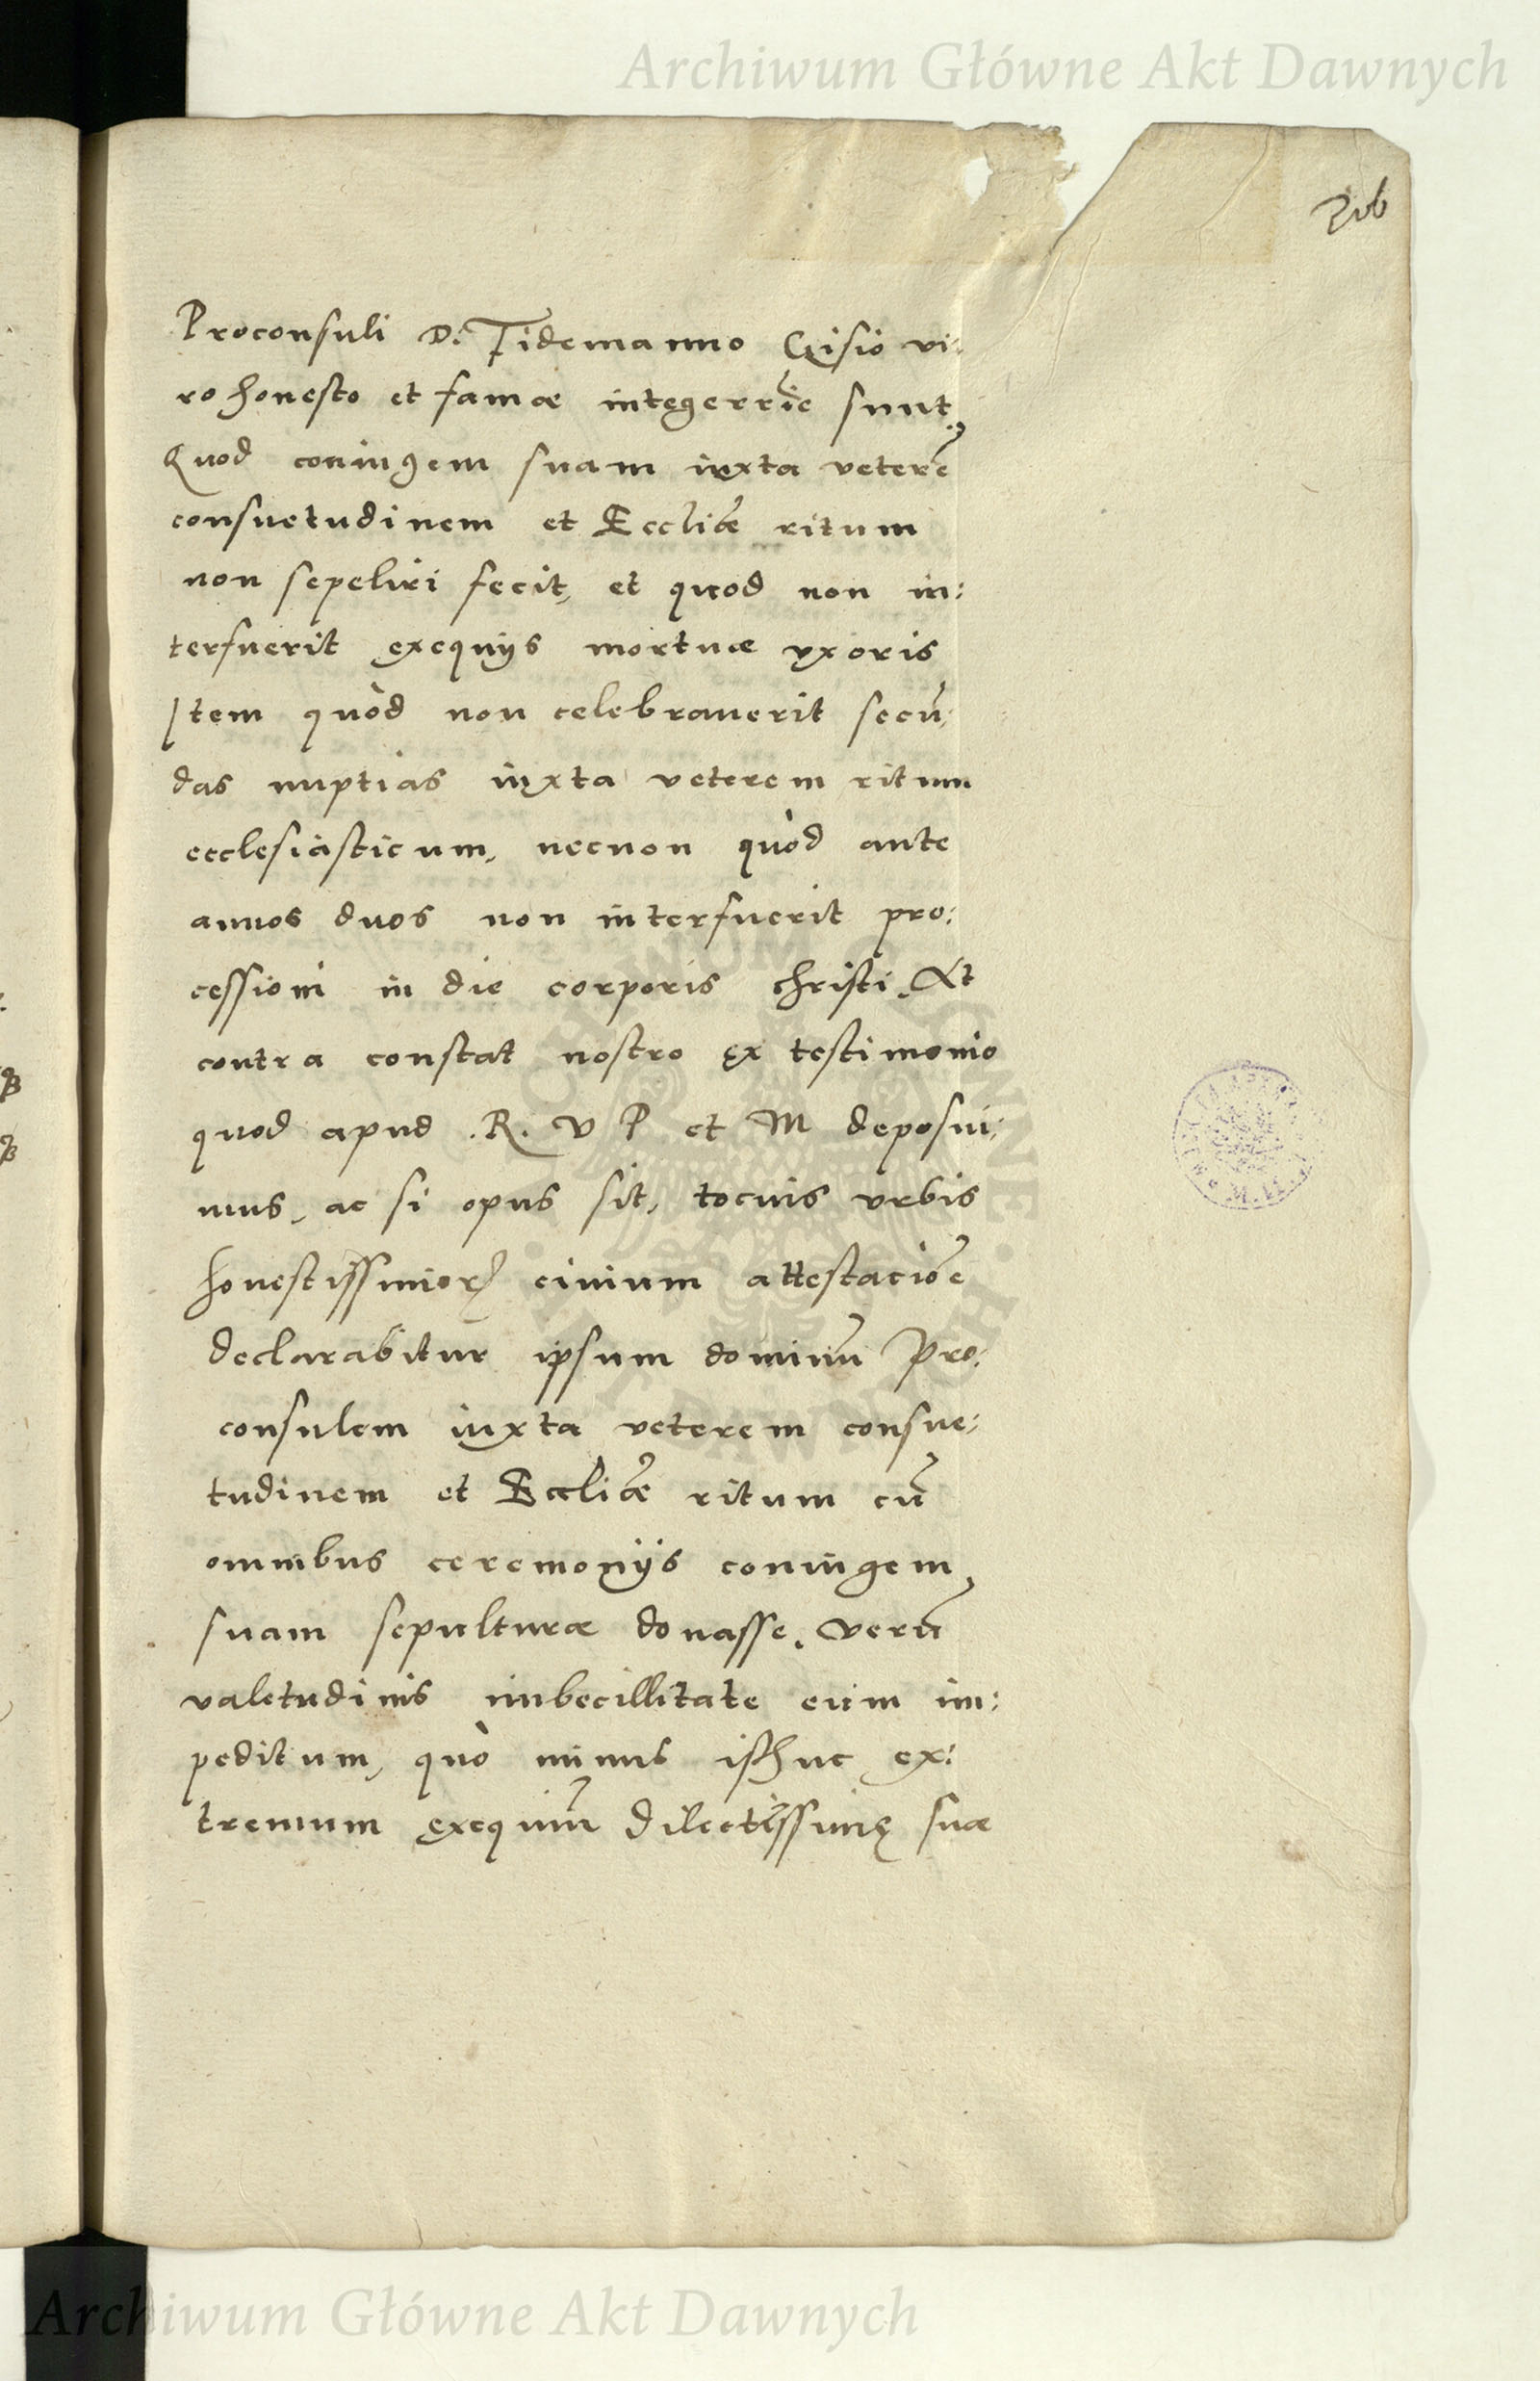 Archiwum Główne Akt Dawnych
Proconsuli D. Tidemanno Gisio vi:
ro honesto et famæ integerrīe sunt,
Quod coniugem suam iuxta veterē
consuetudinem et Eccliæ ritum
non sepeliri fecit, et quod non in:
terfuerit exequijs mortuæ vxoris
Item quòd non celebrauerit secū:
das nuptias iuxta veterem ritum
ecclesiasticum, necnon quòd ante
annos duos non interfuerit pro:
cessioni in die corporis christi, At
contra constat nostro ex testimonio
quod apud .R. V P et M deposui:
mus, ac si opus sit, tocius vrbis
honestissimorꝝ ciuium attestaciōe
declarabitur ipsum dominū Pro:
consulem iuxta veterem consue:
tudinem et Eccliæ ritum cū
omnibus ceremonijs coniugem
suam sepulturæ donasse, verū
valetudinis imbecillitate eum im:
peditum, quò minus isthuc ex:
tremum exequiū dilectissimę suæ
Archiwum Główne Akt Dawnych